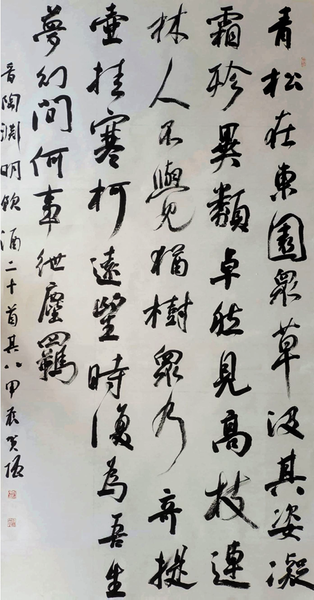 青松在東園眾草沒其姿凝
霜殄異類卓然見高枝連
林人不覺獨樹眾乃奇提
壺挂寒柯遠望時復為吾生
夢幻間何事紲塵羈
晉陶淵明飲酒二十首其八甲辰